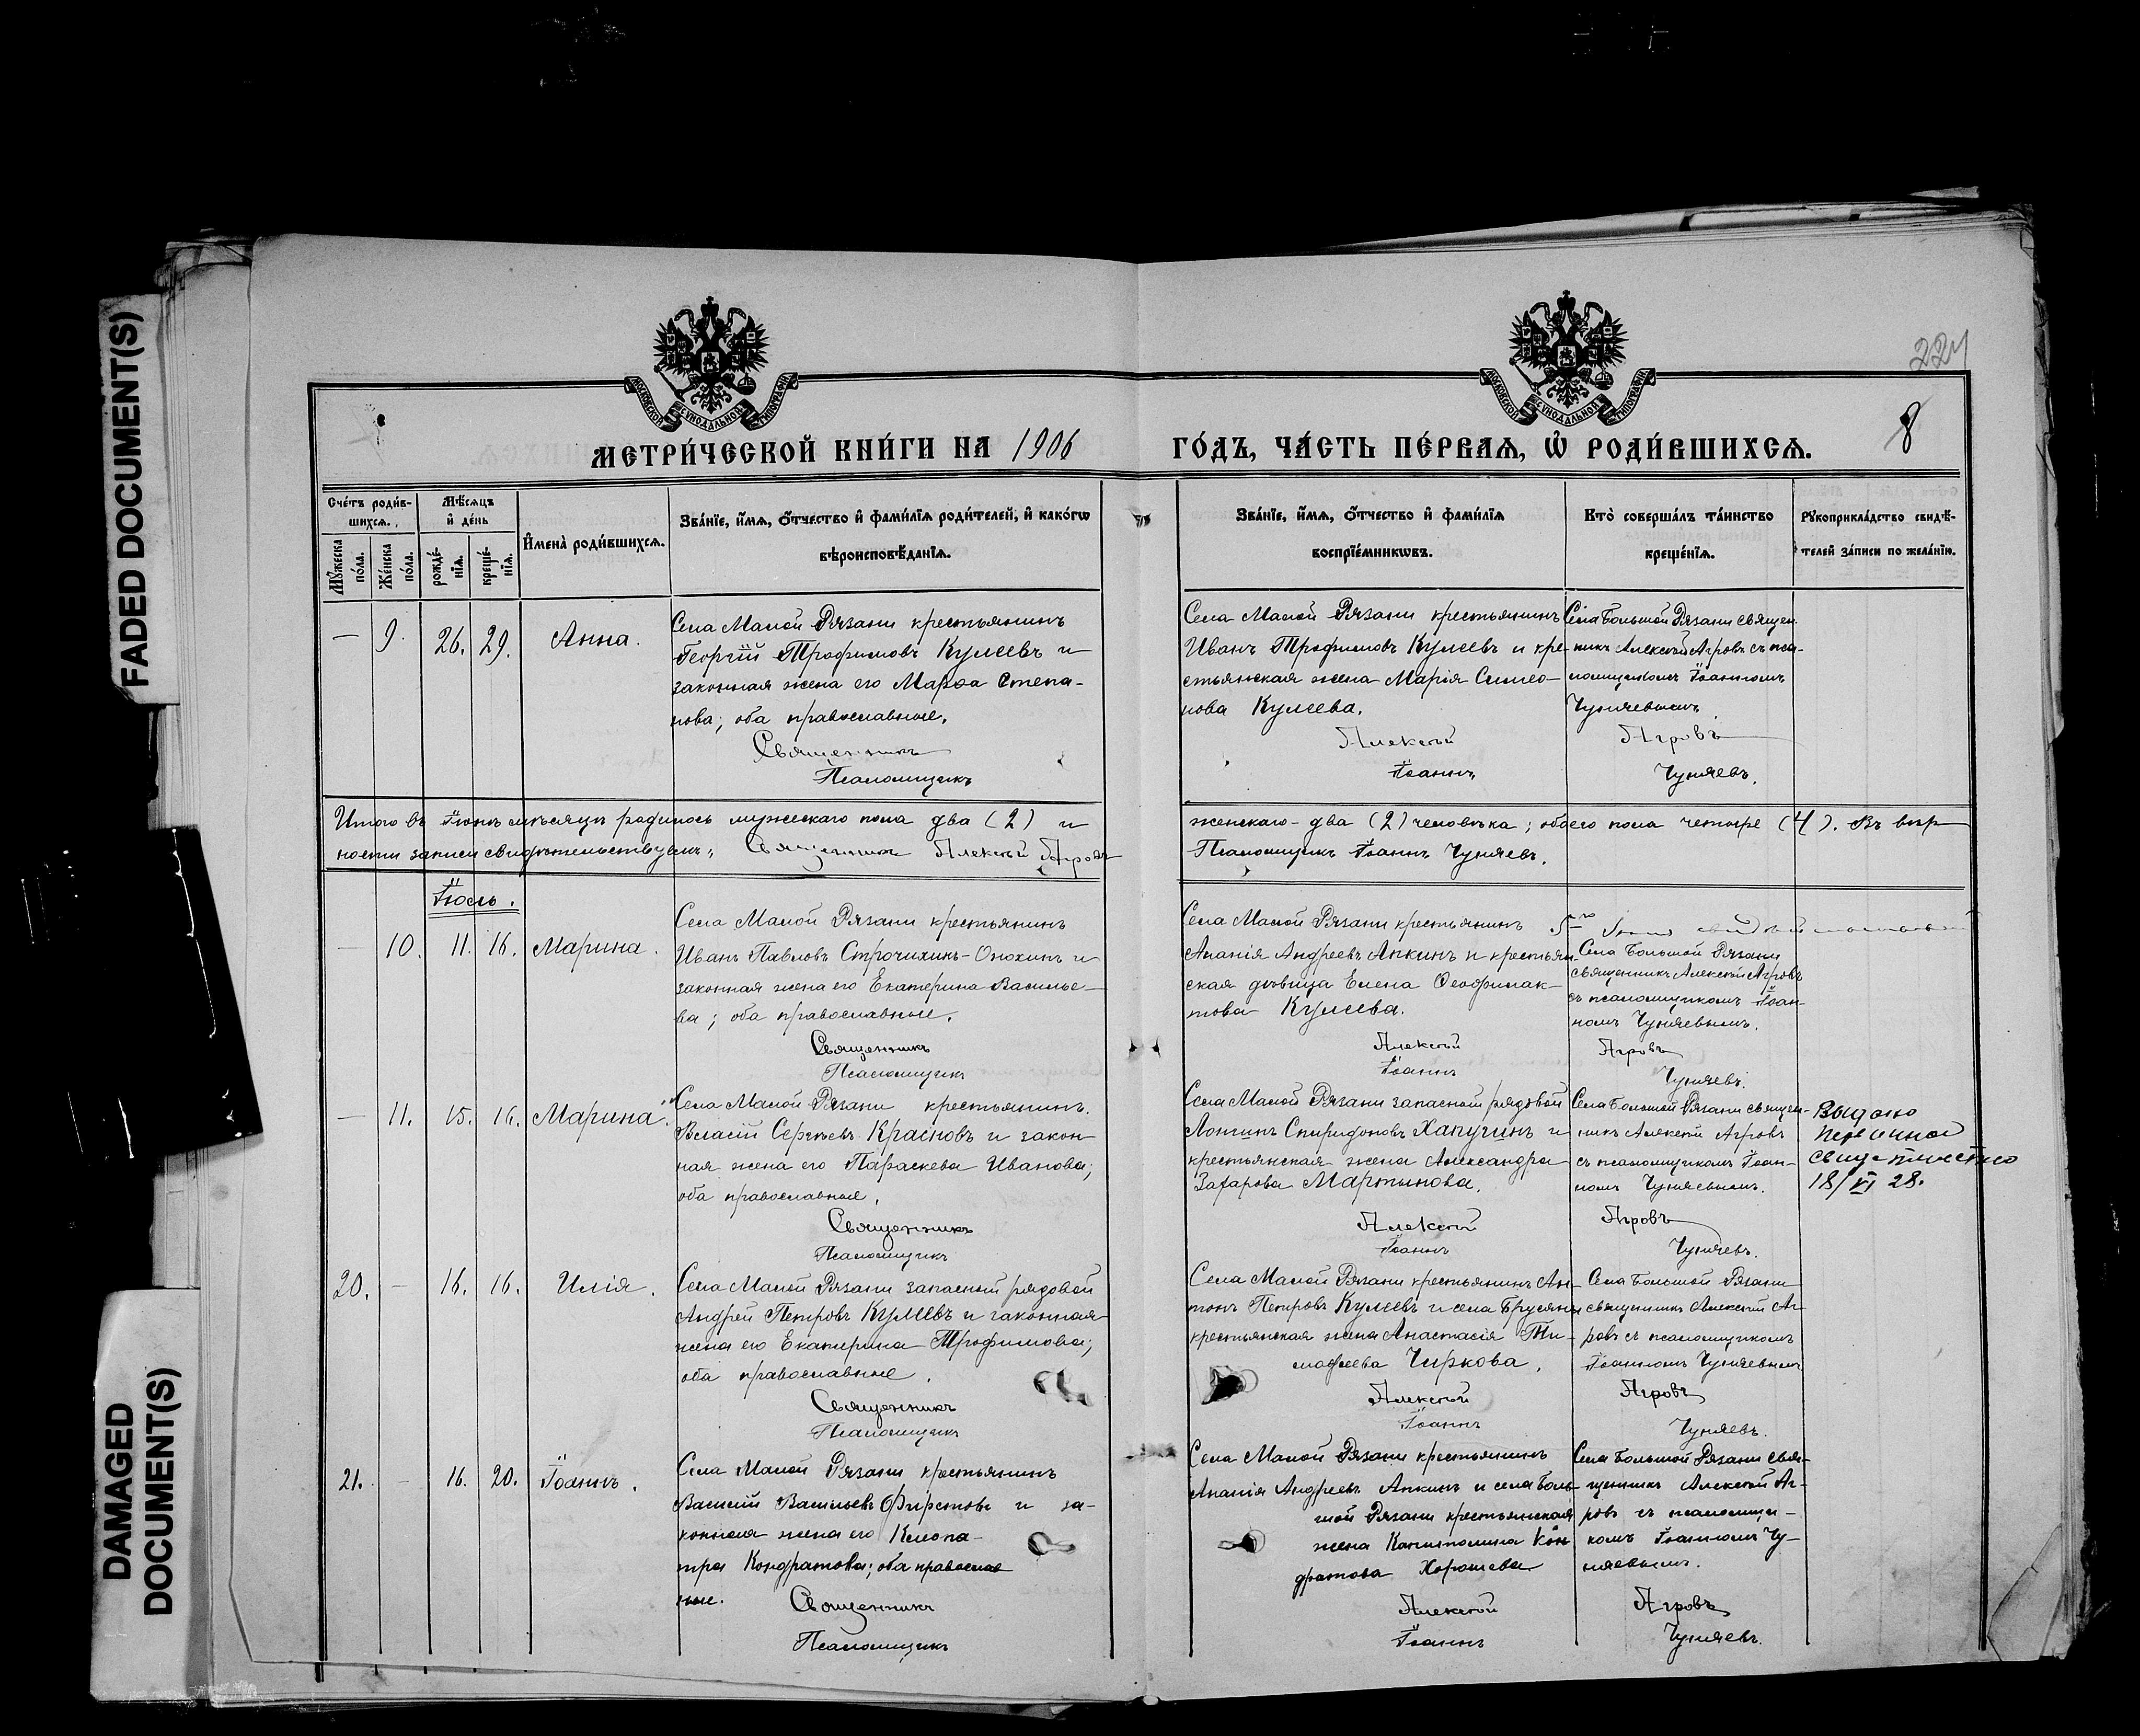 FADED DOCUMENT(S)
DAMAGED
DOCUMENT(S)
МОСКОВСКОЙ СѴНОДАЛЬНОЙ ТИПОГРАФІИ
МОСКОВСКОЙ СѴНОДАЛЬНОЙ ТИПОГРАФІИ
224
8
МЕТРИ́ЧЕСКОЙ КНИ́ГИ НА 1906 ГО́ДЪ, ЧА́СТЬ ПЕ́РВАѦ, Ѽ РОДИ́ВШИХСѦ.
Сче́тъ роди́в-
шихсѧ.
Мѣ́сѧцъ
и҆ де́нь
Мꙋ́жеска по́ла.
Же́нска по́ла.
рожде́-
нїѧ.
креще́-
нїѧ.
И҆мена̀ роди́вшихсѧ.
Зва́нїе, и҆́мѧ, ѻ҆́тчество и҆ фами́лїѧ роди́телей, и҆ како́гѡ
вѣроисповѣ́данїѧ.
Зва́нїе, и҆́мѧ, ѻ҆́тчество и҆ фами́лїѧ
воспрїе́мникѡвъ.
Кто̀ соверша́лъ та́инство
креще́нїѧ.
Рꙋкоприкла́дство свидѣ́-
телей за́писи по жела́нїю.
— 9. 26. 29. Анна.
Села Малой Рязани крестьянинъ
Георгій Трофимовъ Кулеевъ и
законная жена его Марѳа Степа-
нова; оба православные.
Священникъ
Псаломщикъ
Села Малой Рязани крестьянинъ
Иванъ Трофимовъ Кулеевъ и кре-
стьянская жена Марія Симео-
нова Кулеева.
Алексѣй
Іоаннъ
Села Большой Рязани священ-
никъ Алексѣй Агровъ съ пса-
ломщикомъ Іоанномъ
Чуняевымъ.
Агровъ
Чуняевъ.
Итого въ Іюнѣ мѣсяцѣ родилось мужескаго пола два (2) и женскаго - два (2) человѣка; обоего пола четыре (4). Въ вѣр-
ности записи свидѣтельствуемъ: Священникъ Алексѣй Агровъ Псаломщикъ Іоаннъ Чуняевъ.
Іюль.
— 10. 11. 16. Марина.
Села Малой Рязани крестьянинъ
Иванъ Павловъ Строчихинъ-Онохинъ и
законная жена его Екатерина Василье-
ва; оба православные.
Священникъ
Псаломщикъ
Села Малой Рязани крестьянинъ
Ананія Андреевъ Апкинъ и крестьян-
ская дѣвица Елена Ѳеофилак-
това Кулеева.
Алексѣй
Іоаннъ
Села Большой Рязани
священникъ Алексѣй Агровъ
съ псаломщикомъ Іоан-
номъ Чуняевымъ.
Агровъ
Чуняевъ.
— 11. 15. 16. Марина.
Села Малой Рязани крестьянинъ
Власій Сергѣевъ Красновъ и закон-
ная жена его Параскева Иванова;
оба православные.
Священникъ
Псаломщикъ
Села Малой Рязани запасный рядовой
Лонгинъ Спиридоновъ Хапугинъ и
крестьянская жена Александра
Захарова Мартынова.
Алексѣй
Іоаннъ
Села Большой Рязани священ-
никъ Алексѣй Агровъ
съ псаломщикомъ Іоан-
номъ Чуняевымъ.
Агровъ
Чуняевъ.
Выдано
18/VI 28.
20. — 16. 16. Илія.
Села Малой Рязани запасный рядовой
Андрей Петровъ Кулеевъ и законная
жена его Екатерина Трофимова;
оба православные.
Священникъ
Псаломщикъ
Села Малой Рязани крестьянинъ Ан-
тонъ Петровъ Кулеевъ и села Брусяны
крестьянская жена Анастасія Ти-
моѳеева Чиркова.
Алексѣй
Іоаннъ
Села Большой Рязани
священникъ Алексѣй Аг-
ровъ съ псаломщикомъ
Іоанномъ Чуняевымъ
Агровъ
Чуняевъ.
21. — 16. 20. Іоаннъ.
Села Малой Рязани крестьянинъ
Василій Васильевъ Фирстовъ и за-
конная жена его Клеопа-
тра Кондратова; оба православ
ные.
Священникъ
Псаломщикъ
Села Малой Рязани крестьянинъ
Ананія Андреевъ Апкинъ и села Боль-
шой Рязани крестьянская
жена Капитолина Кон
дратова Хорошева
Алексѣй
Іоаннъ
Села Большой Рязани свя-
щенникъ Алексѣй Аг-
ровъ съ псаломщи-
комъ Іоанномъ Чу-
няевымъ.
Агровъ
Чуняевъ.